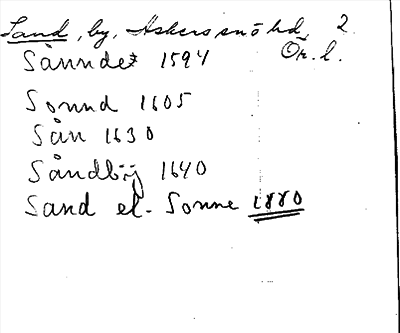 Sand, by, Askers snö hd, 2
Ör. l.
Sånndet 1594
Sonnd 1605
Sån 1630
Såndbÿ 1640
Sand el. Sonne 1880